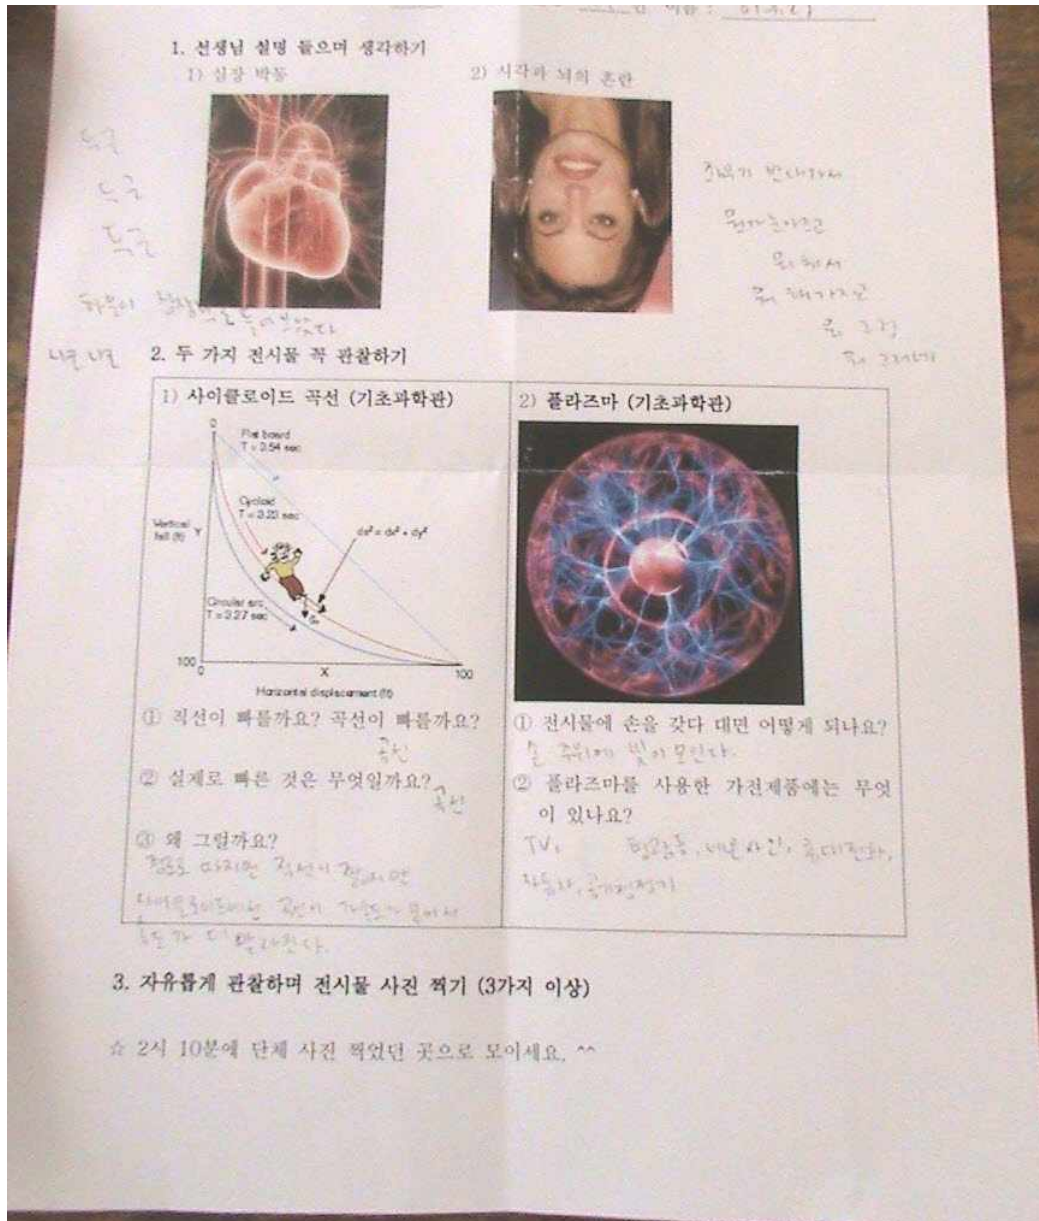 이름 :
1. 선생님 설명 들으며 생각하기
1) 심장 박동
2) 시각과 뇌의 혼란
두근
두근
두근
좌우가 반대라서
뭐
뭐
뭐
2. 두 가지 전시물 꼭 관찰하기
1) 사이클로이드 곡선 (기초과학관)
0
Flat board
T = 3.54 sec
Cycloid
T = 3.23 sec
Vertical
fall (ft)
Y
ds² = dx² + dy²
Circular arc
T = 3.27 sec
100
0
X
100
Horizontal displacement (ft)
① 직선이 빠를까요? 곡선이 빠를까요?
곡선
② 실제로 빠른 것은 무엇일까요?
곡선
③ 왜 그럴까요?
직선이 짧지만
곡선이 가속도가 붙어서
속도가 더 빨라진다.
2) 플라즈마 (기초과학관)
① 전시물에 손을 갖다 대면 어떻게 되나요?
손 주위에 빛이 모인다.
② 플라즈마를 사용한 가전제품에는 무엇
이 있나요?
TV, 형광등, 네온사인, 휴대전화,
자동차, 공기청정기
3. 자유롭게 관찰하며 전시물 사진 찍기 (3가지 이상)
☆ 2시 10분에 단체 사진 찍었던 곳으로 모이세요. ^^